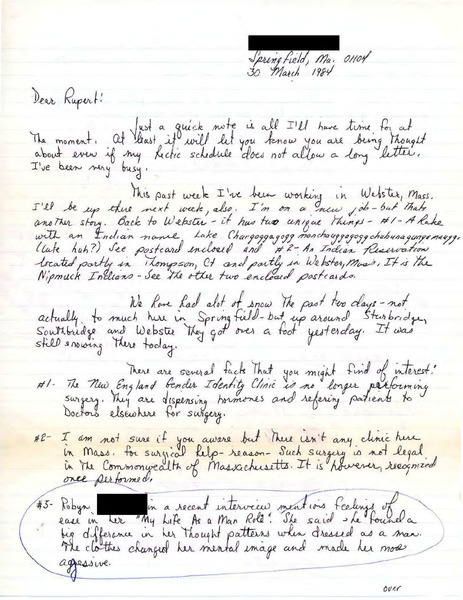 Springfield, Ma. 01104
30 March 1984
Dear Rupert!
Just a quick note is all I'll have time for at
the moment. At least it will let you know you are being thought
about even if my hectic schedule does not allow a long letter.
I've been very busy.
This past week I've been working in Webster, Mass.
I'll be up there next week, also. I'm on a new job - but thats
another story. Back to Webster - it has two unique things - #1 - A lake
with an Indian name Lake Chargoggagogg manchauggagogg chabunagungamaugg.
(cute huh?) See postcard enclosed and #2 - An Indian Reservation
located partly in Thompson, Ct and partly in Webster, Mass. It is the
Nipmuck Indians - See the other two enclosed postcards.
We have had alot of snow the past two days - not
actually to much here in Springfield - but up around Sturbridge,
Southbridge and Webster They got over a foot yesterday. It was
still snowing there today.
There are several facts that you might find of interest!
#1- The New England Gender Identity Clinic is no longer performing
surgery. They are dispensing hormones and refering patients to
Doctors elsewhere for surgery.
#2- I am not sure if you aware but there isn't any clinic here
in Mass. for surgical help - reason - Such surgery is not legal
in the Commonwealth of Massachusetts. It is however, recognized
once performed.
#3- Robyn in a recent interview mentions feelings of
ease in her "My Life As a Man Role". She said she found a
big difference in her thought patterns when dressed as a man.
The clothes changed her mental image and made her more
aggressive.
over